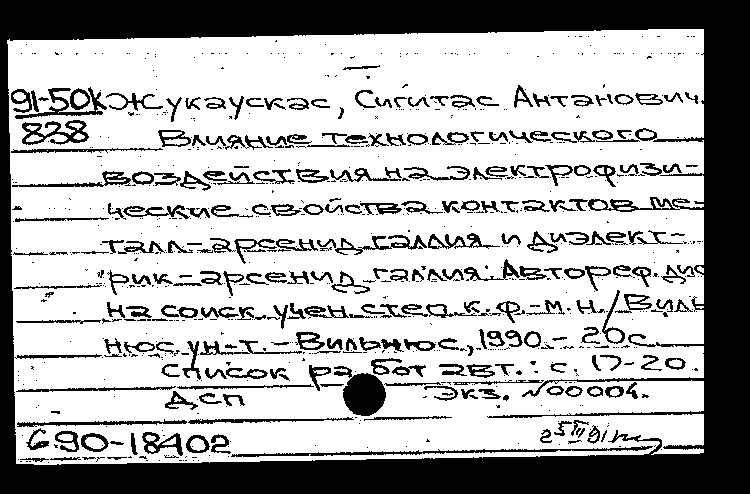 91-50к Жукаускас, Сигитас Антанович.
838 Влияние технологического
воздействия на электрофизи-
ческие свойства контактов ме-
талл-арсенид галлия и диэлект-
рик-арсенид галлия: Автореф. дис
на соиск учен. степ. к.ф.-м.н./Виль
нюс. ун-т. - Вильнюс, 1990. - 20с.
Список работ авт.: с. 17-20.
ДСП Экз. №00004.
6 90-18402 25 III 91